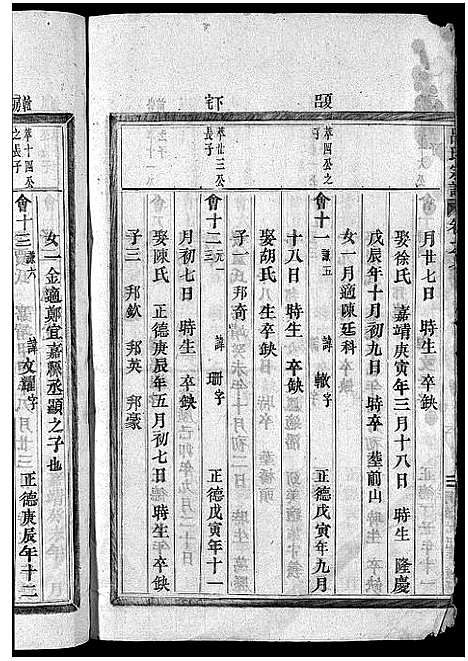 月廿七日 時生 卒缺
娶徐氏 嘉靖庚寅年三月十八日 時生 隆慶
戊辰年十月初九日時卒 塟前山
女一月適陳廷科 卒缺
萃十四公之子
會十一 謙五 諱 轍 字 正德戊寅年九月
十八日 時生 卒缺
娶胡氏 八 生卒缺
子一 邦奇
萃廿三公長子
會十二 元一 諱 珊 字 正德戊寅年十一
月初七日 時生 卒缺
娶陳氏 正德庚辰年五月初七日 時生 卒缺
子三 邦欽 邦英 邦豪
女一金適鄭宜嘉縣丞顯之子也
萃十四公之長子
會十三 謙六 諱 文耀 字 正德庚辰年十二